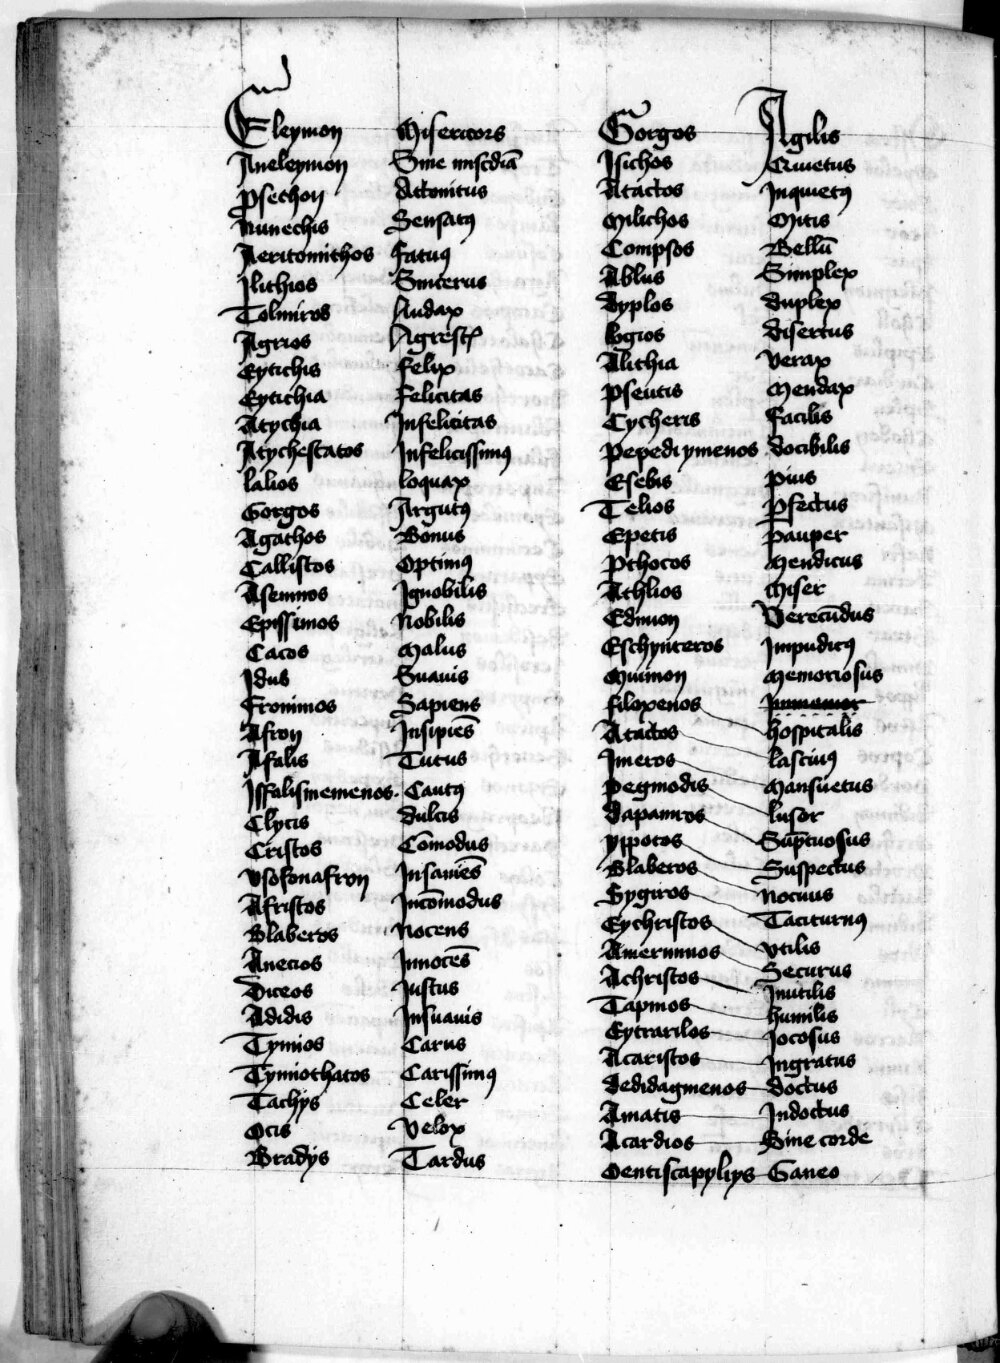 Eleymon Misericors
Aneleymon Sine miscdiā
Psechon Attonitus
Nunechis Sensatꝰ
Aeritomithos Fatuꝰ
Ilithios Sincerus
Tolmiros Audax
Agrios Agrest
Eytichis Felix
Eytichia Felicitas
Atychia Infelicitas
Atychestatos Infelicissimꝰ
Lalios Loquax
Gorgos Argutꝰ
Agathos Bonus
Callistos Optimꝰ
Asemnos Ignobilis
Epissimos Nobilis
Cacos Malus
Idus Suauis
Fronimos Sapiens
Afron Insipiēs
Afalis Tutus
Isfalismemenos. Cautꝰ
Clycis dulcis
Cristos Cōmodus
Vsofonafron Insaniēs
Afristos Incōmodus
Blaberos Nocens
Anecios Innocēs
Diceos Iustus
Adidis Insuauis
Tymios Carus
Tymiothatos Carissimꝰ
Tachys Celer
Ocis Velox
Bradys Tardus
Gorgos Agilis
Isichos Quietus
Atactos Inquietꝰ
Milichos Mitis
Compsos Bellū
Ablus Simplex
Dyplos Duplex
Logios Disertus
Alithia Verax
Pseutis Mendax
Cycheris Facilis
Pepediymenos docibilis
Esebis Pius
Telios Pfectus
Epetis Pauper
Pthocos Mendicus
Athlios Miser
Edmon Verecūdus
Eschynteros Impudicꝰ
Muimon Memoriosus
Filoxenos Inmemor
Atactos hospitalis
Imeros lasciuꝰ
Pegmodis Mansuetus
dapanros lusor
ypotos Sūptuosus
Blaberos Suspectus
Sygiros Nociuus
Eychristos Taciturnꝰ
Amerimnos vtilis
Achristos Securus
Tapinos Inutilis
Eytrarilos humilis
Acaristos Iocosus
dedidagmenos Ingratus
Amatis doctus
Acardios Indoctus
Oentiscapyliys Sine corde
Ganeo